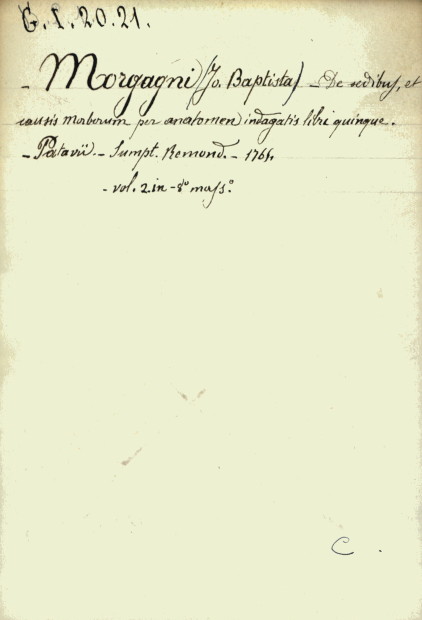 G.I.20.21.
- Morgagni (Jo. Baptista) - De sedibus, et
causis morborum per anatomen indagatis libri quinque.
- Patavii. - Sumpt. Remond. - 1764.
- vol. 2. in - 8º mass.º
C.